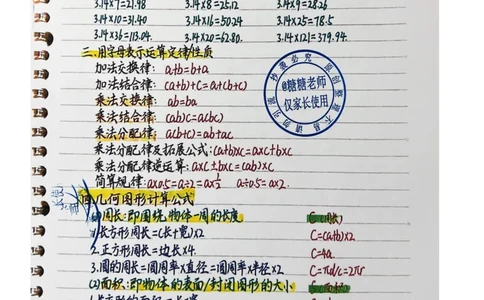 3.14×7=21.98 3.14×8=25.12 3.14×9=28.26
3.14×10=31.40 3.14×16=50.24 3.14×25=78.5
3.14×36=113.04 3.14×20=62.80 3.14×121=379.94
三.用字母表示运算定律/性质
加法交换律: a+b=b+a
加法结合律: (a+b)+c=a+(b+c)
乘法交换律: ab=ba
乘法结合律: (ab)c=a(bc)
乘法分配律: a(b+c)=ab+ac
乘法分配律及拓展公式:(a±b)×c=a×c±b×c
乘法分配律逆运算: a×c±b×c=(a±b)×c
简算规律: a×0.5=a÷2=a×½ a÷0.5=a×2.
@糖糖老师
仅家长使用
几何图形计算公式
(1)周长:即围绕物体一周的长度 C(周长)
1.长方形周长=(长+宽)×2 C=(a+b)×2
2.正方形周长=边长×4. C=4a
3.圆的周长=圆周率×直径=圆周率×半径×2 C=πd/c=2πr
(2)面积:即物体的表面/封闭图形的大小